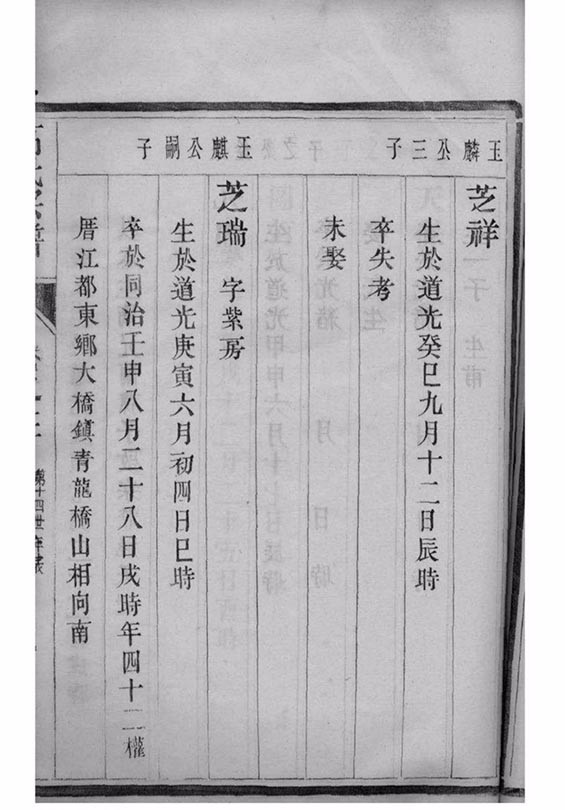 玉麟公三子
芝祥
生於道光癸巳九月十二日辰時
卒失考
未娶
玉麒公嗣子
芝瑞 字紫房
生於道光庚寅六月初四日巳時
卒於同治壬申八月二十八日戌時年四十三權
厝江都東鄉大橋鎮青龍橋山相向南
第十四世年表